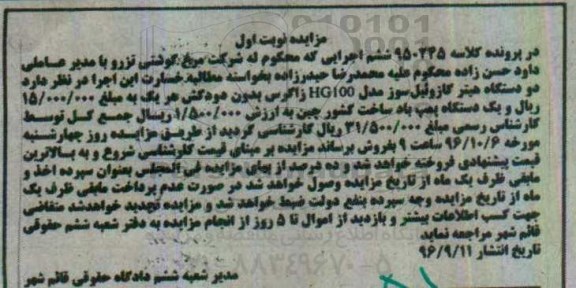 مزایده نوبت اول
در پرونده کلاسه ۹۵۰۲۴۵ ششم اجرایی که محکوم له شرکت مرغ گوشتی نزرو با مدیر عاملی
داود حسن زاده محکوم علیه محمدرضا حیدرزاده بخواسته مطالبه خسارت این اجرا در نظر دارد
دو دستگاه هیتر گازوئیل سوز مدل HG100 زاگرس بدون دودکش هر یک به مبلغ ۱۵/۰۰۰/۰۰۰
ریال و یک دستگاه پمپ باد ساخت کشور چین به ارزش ۱/۵۰۰/۰۰۰ ریال جمع کل توسط
کارشناس رسمی مبلغ ۳۱/۵۰۰/۰۰۰ ریال کارشناسی گردید از طریق مزایده روز چهارشنبه
مورخه ۹۶/۱۰/۶ ساعت ۹ بفروش برساند مزایده بر مبنای قیمت کارشناسی شروع و به بالاترین
قیمت پیشنهادی فروخته خواهد شد و ده درصد از بهای مزایده فی المجلس بعنوان سپرده اخذ و
مابقی ظرف یک ماه از تاریخ مزایده وصول خواهد شد در صورت عدم پرداخت مابقی ظرف یک
ماه از تاریخ مزایده وجه سپرده بنفع دولت ضبط خواهد شد و مزایده تجدید خواهدشد متقاضی
جهت کسب اطلاعات بیشتر و بازدید از اموال تا ۵ روز از انجام مزایده به دفتر شعبه ششم حقوقی
قائم شهر مراجعه نماید
تاریخ انتشار ۹۶/۹/۱۱
مدیر شعبه ششم دادگاه حقوقی قائم شهر